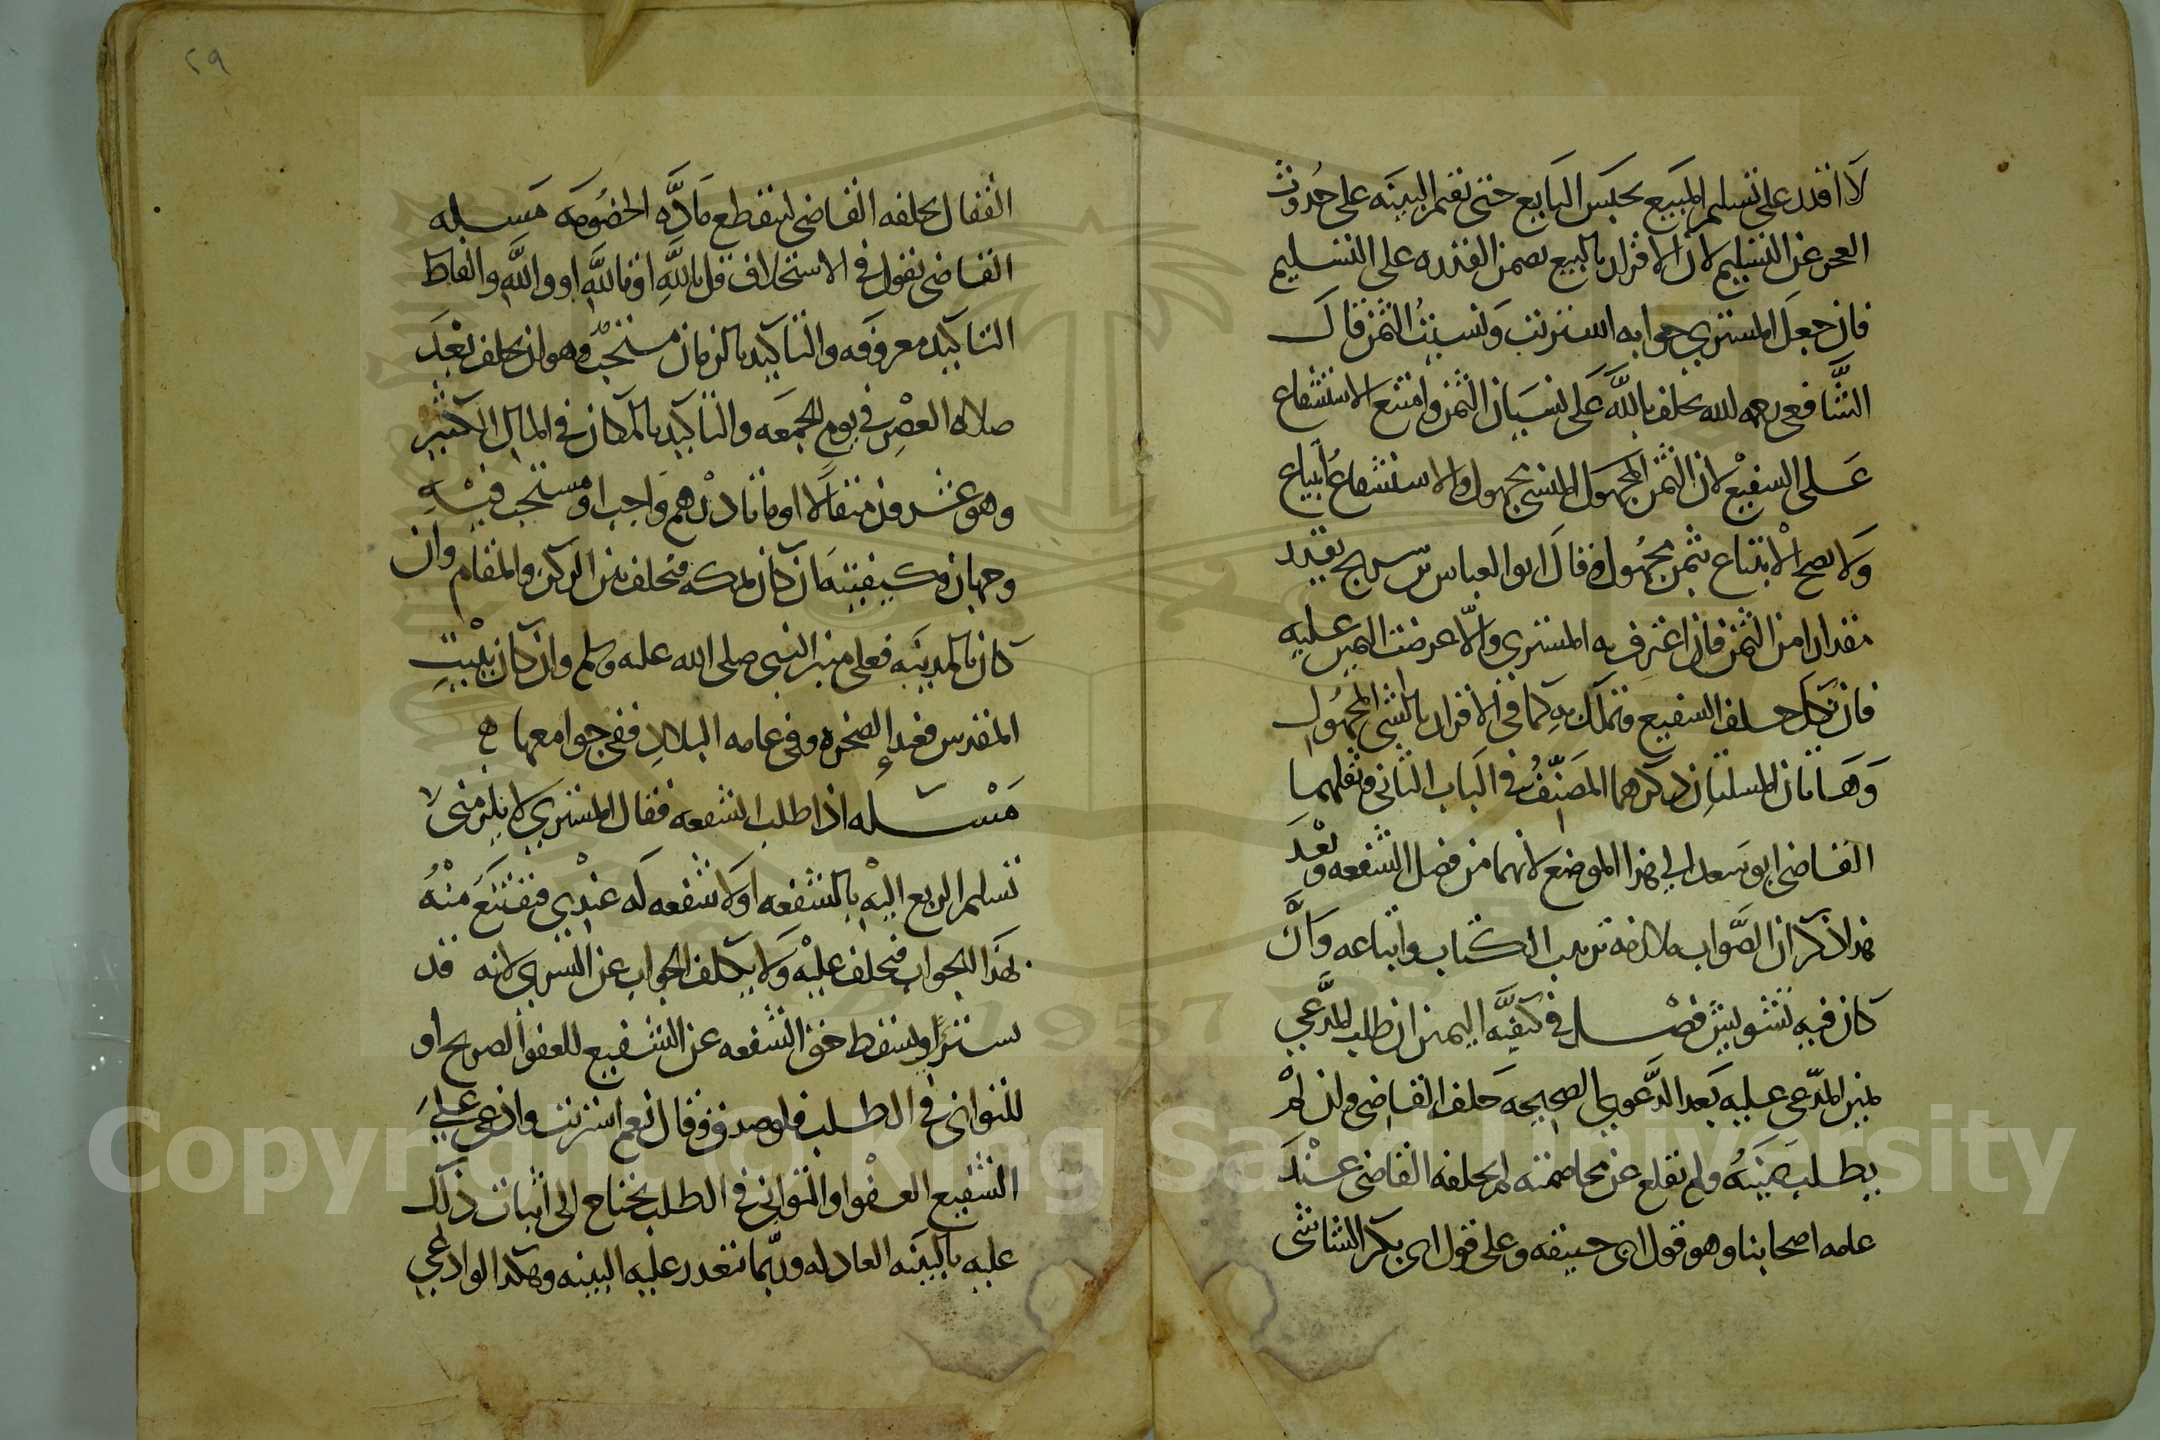 لا اقدر على تسليم المبيع يحبس البايع حتى تقيم البينه على حدوث
العجز عن التسليم لان الاقرار بالبيع يضمن القدره على التسليم
فان جعل المشتري جوابه اشتريت ونسيت الثمن قال
الشافعي رحمه الله يحلف بالله على نسيان الثمن وامتنع الاستشفاع
على الشفيع لان الثمن المجهول المنسي مجهول والاستشفاع ابتياع
ولا يصح الابتياع بثمن مجهول وقال ابو العباس بن سريج يقدر
مقدارا من الثمن فان اعترف به المشتري والا عرضت اليمين عليه
فان نكل حلف الشفيع وتملك به كما في الاقرار بالشي المجهول
وهاتان المسلتان ذكرهما المصنف في الباب الثاني ونقلهما
القاضي ابو سعد الى هذا الموضع لانهما من فصل الشفعه وبعد
هذا ذكر ان الصواب ملازمه ترتيب الكتاب واتباعه وان
كان فيه تشويش فصل في كيفيه اليمين ان طلب المدعي
يمين المدعى عليه بعد الدعوى الصحيحه حلف القاضي وان لم
يطلب يمينه ولم يقلع عن مخاصمته لم يحلفه القاضي عند
عامه اصحابنا وهو قول ابي حنيفه وعلى قول ابي بكر الشاشي
٢٩
القفال يحلفه القاضي لينقطع ماده الخصومه مسله
القاضي يقول في الاستحلاف قل بالله او تالله او والله والفاظ
التاكيد معروفه والتاكيد بالزمان مستحب وهو ان يحلف بعد
صلاه العصر في يوم الجمعه والتاكيد بالمكان في المال الكثير
وهو عشرون مثقالا او مائتا درهم واجب او مستحب فيه
وجهان وكيفيته ان كان بمكه فيحلف بين الركن والمقام وان
كان بالمدينه فعلى منبر النبي صلى الله عليه وسلم وان كان ببيت
المقدس فعند الصخره وفي عامه البلاد ففي جوامعها
مسله اذا طلب الشفعه فقال المشتري لا يلزمني
تسليم الربع اليه بالشفعه او لا شفعه له عندي فيقتنع منه
بهذا الجواب فيحلف عليه ولا يكلف الجواب عن الشري لانه قد
يشتري ويسقط حق الشفعه عن الشفيع للعفو الصريح او
للتواني في الطلب فلو صدق وقال نعم اشتريت وادعى على
الشفيع العفو او التواني في الطلب يحتاج الى اثبات ذلك
عليه بالبينه العادله وربما تتعذر عليه البينه وهكذا لو ادعي
Copyright © King Saud University
1957